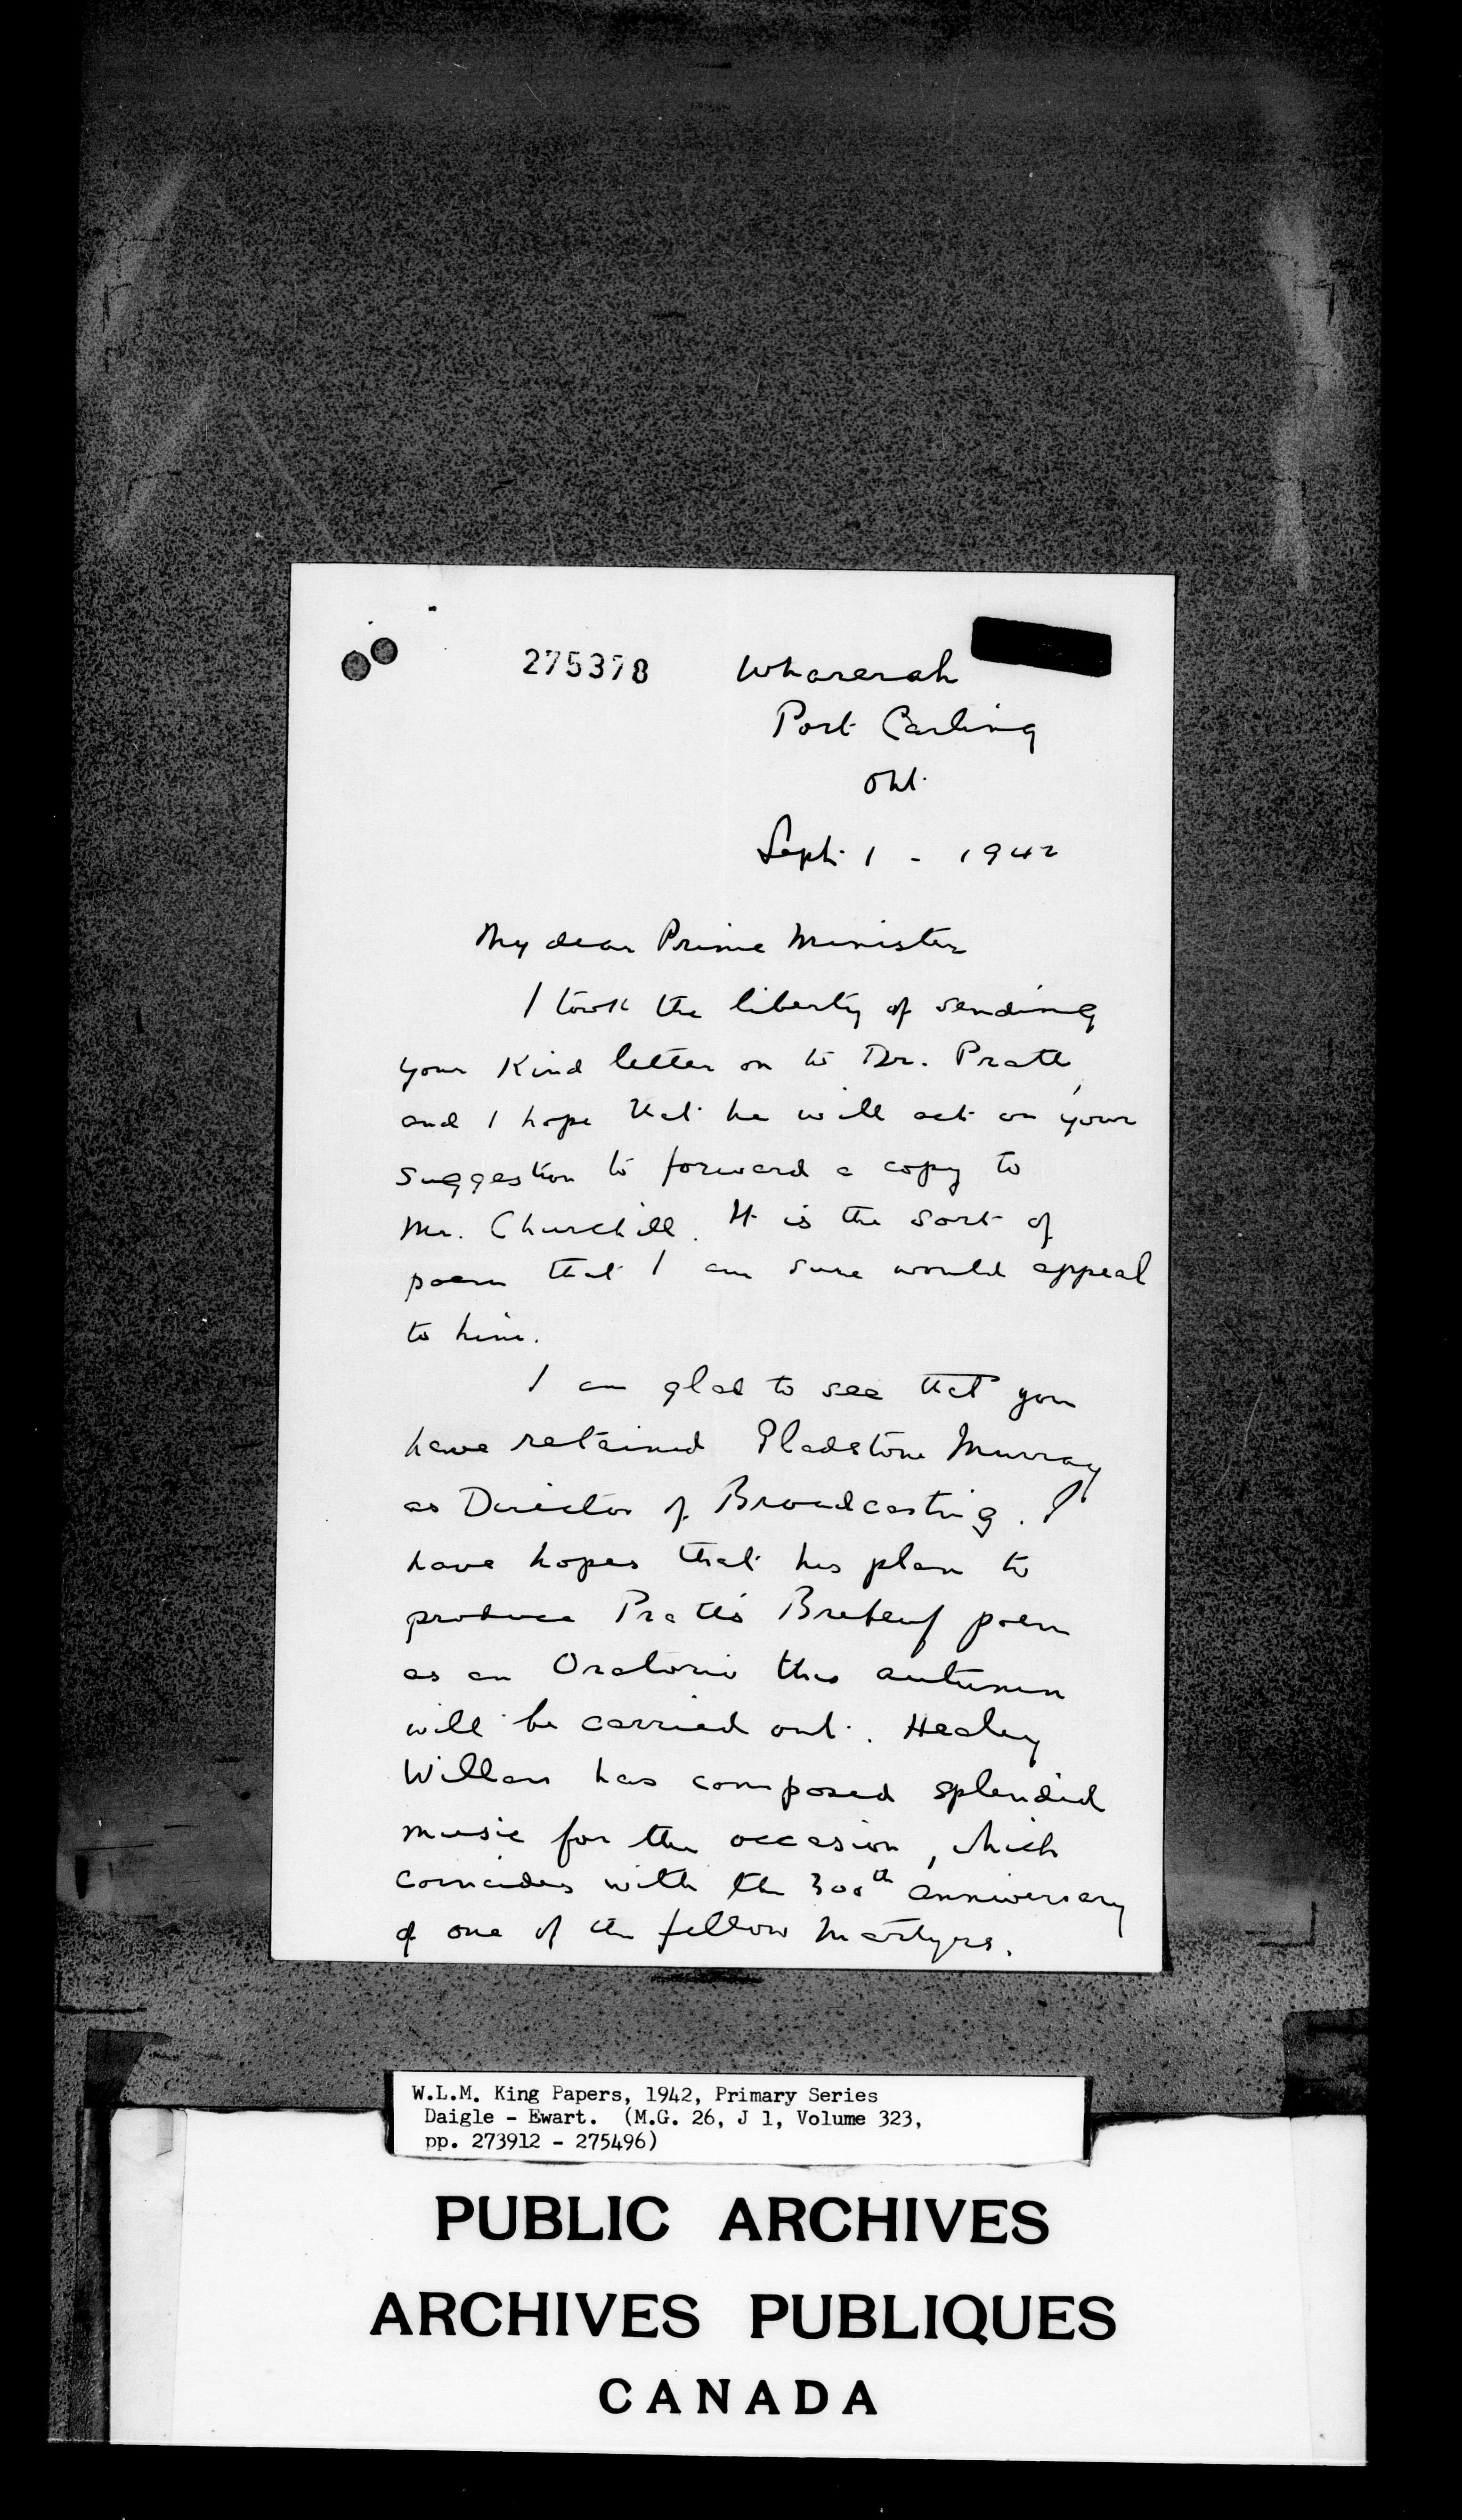 275378
Wharerah
Port Carling
Ont.
Sept. 1 - 1942
My dear Prime Minister
I took the liberty of sending
your kind letter on to Dr. Pratt,
and I hope that he will act on your
suggestion to forward a copy to
Mr. Churchill. It is the sort of
poem that I am sure would appeal
to him.
I am glad to see that you
have retained Gladstone Murray
as Director of Broadcasting. I
have hopes that his plan to
produce Pratt's Brebeuf poem
as an Oratorio this autumn
will be carried out. Healey
Willan has composed splendid
music for the occasion, which
coincides with the 300th anniversary
of one of the fellow martyrs.
W.L.M. King Papers, 1942, Primary Series
Daigle - Ewart. (M.G. 26, J 1, Volume 323,
pp. 273912 - 275496)
PUBLIC ARCHIVES
ARCHIVES PUBLIQUES
CANADA